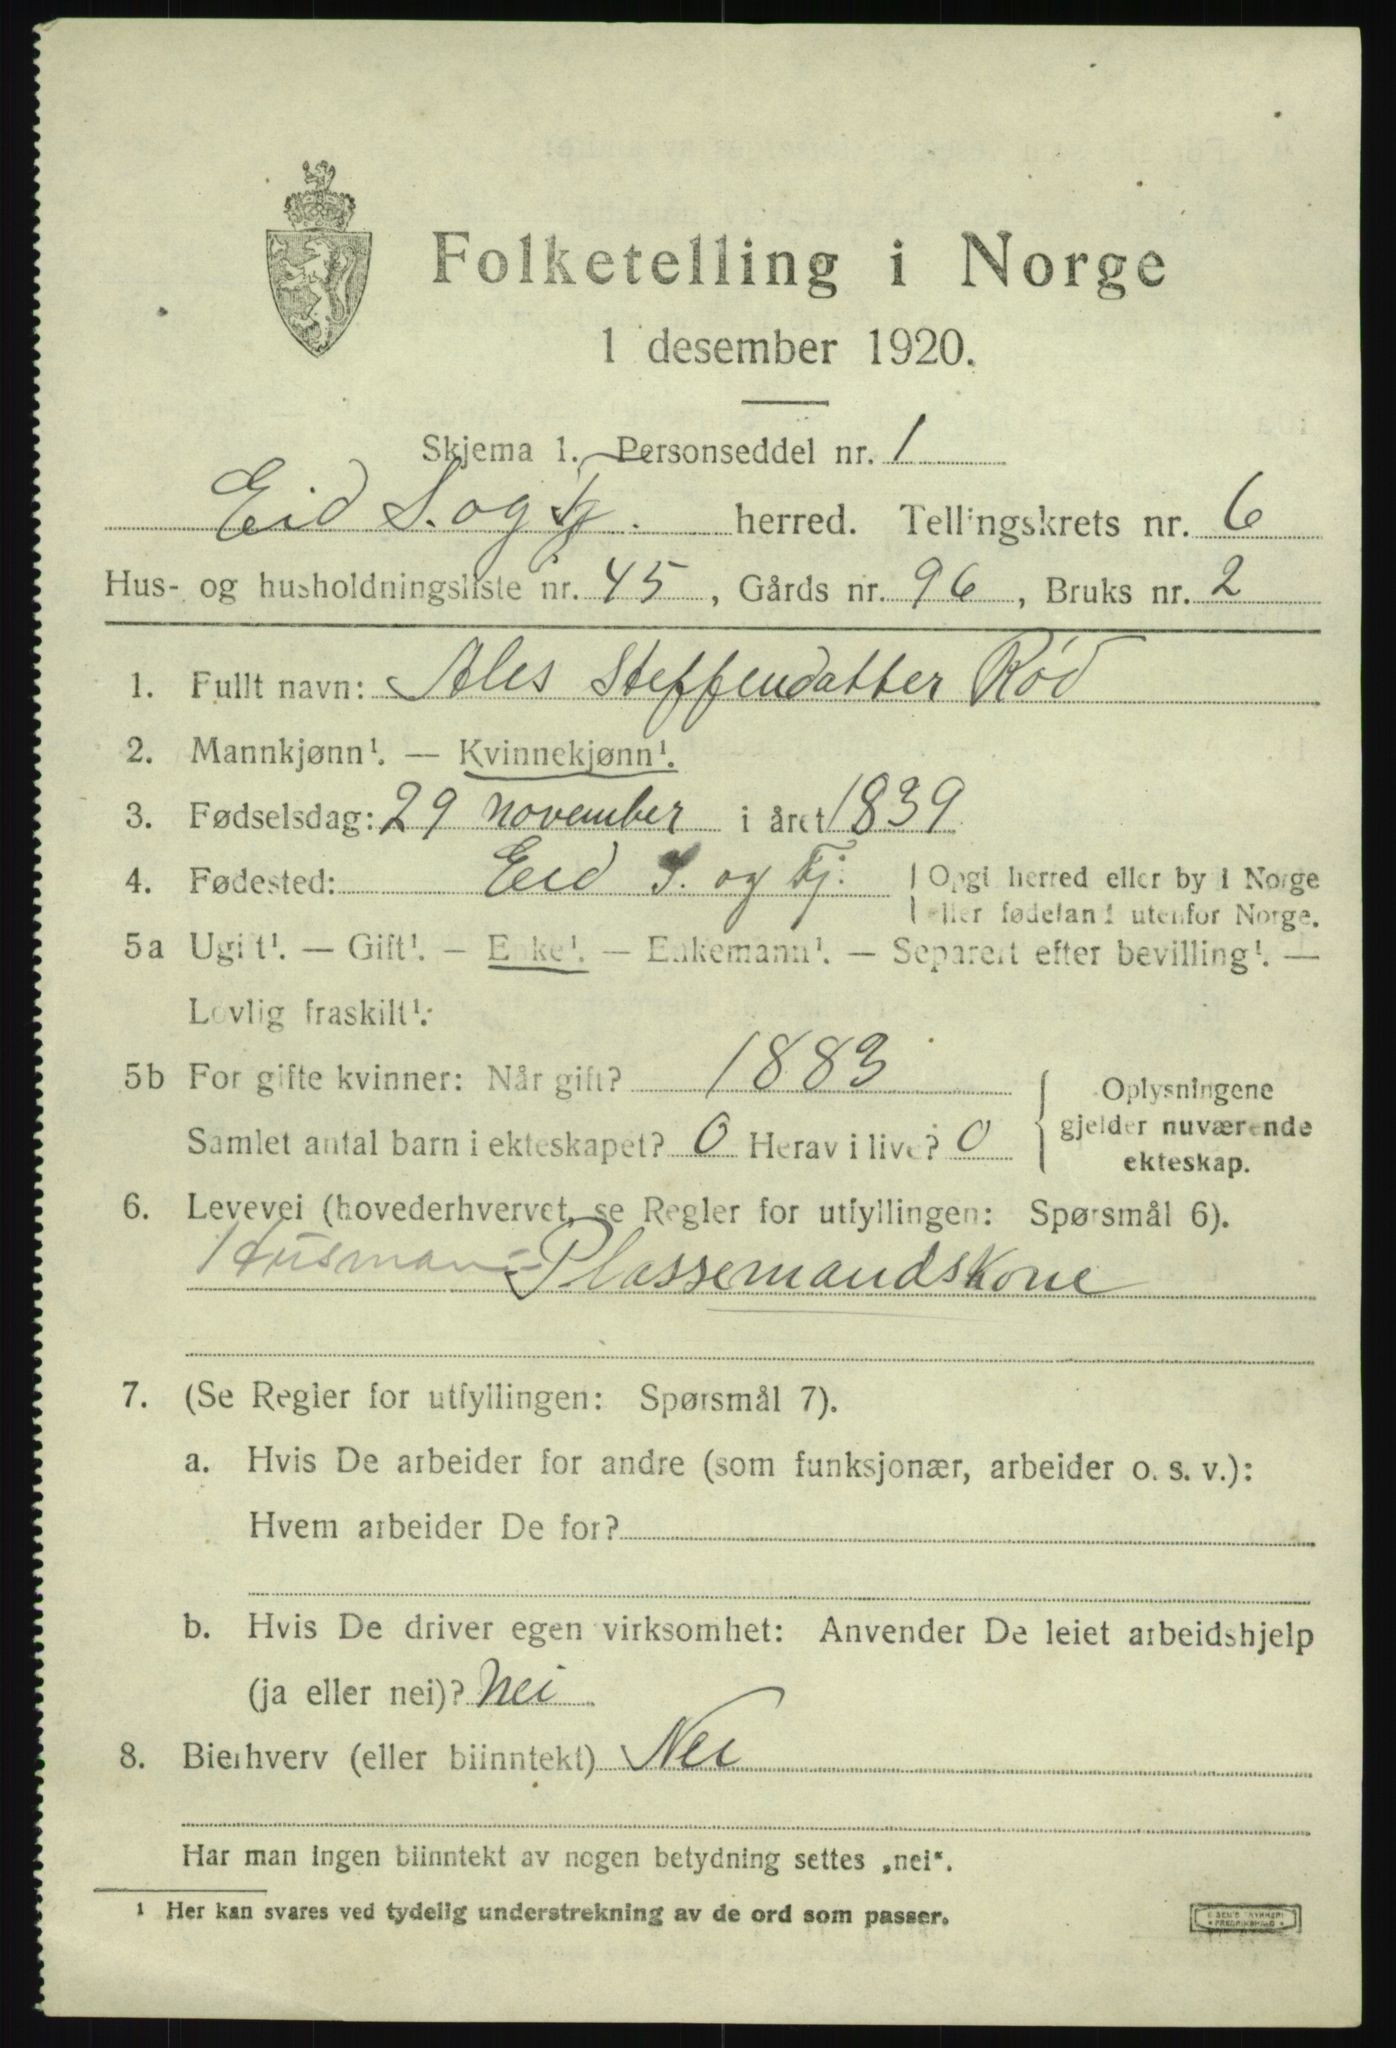 Folketelling i Norge
1 desember 1920.
Skjema 1. Personseddel nr. 1
Eid S. og Fj. herred. Tellingskrets nr. 6
Hus- og husholdningsliste nr. 45, Gårds nr. 96, Bruks nr. 2
1. Fullt navn: Ales Steffendatter Rød
2. Mannkjønn¹. — Kvinnekjønn¹.
3. Fødselsdag: 29 november i året 1839
4. Fødested: Eid S. og Fj. Opgi herred eller by i Norge
eller fødeland utenfor Norge.
5a Ugift¹. — Gift¹. — Enke¹. — Enkemann¹. — Separert efter bevilling¹. —
Lovlig fraskilt¹.
5b For gifte kvinner: Når gift? 1883
Samlet antal barn i ekteskapet? 0 Herav i live? 0
Oplysningene
gjelder nuværende
ekteskap.
6. Levevei (hovederhvervet, se Regler for utfyllingen: Spørsmål 6).
Husman- Plassemandskone
7. (Se Regler for utfyllingen: Spørsmål 7).
a. Hvis De arbeider for andre (som funksjonær, arbeider o. s. v.):
Hvem arbeider De for?
b. Hvis De driver egen virksomhet: Anvender De leiet arbeidshjelp
(ja eller nei)? Nei
8. Bierhverv (eller biinntekt) Nei
Har man ingen biinntekt av nogen betydning settes „nei“.
¹ Her kan svares ved tydelig understrekning av de ord som passer.
FREDRIKSHALD